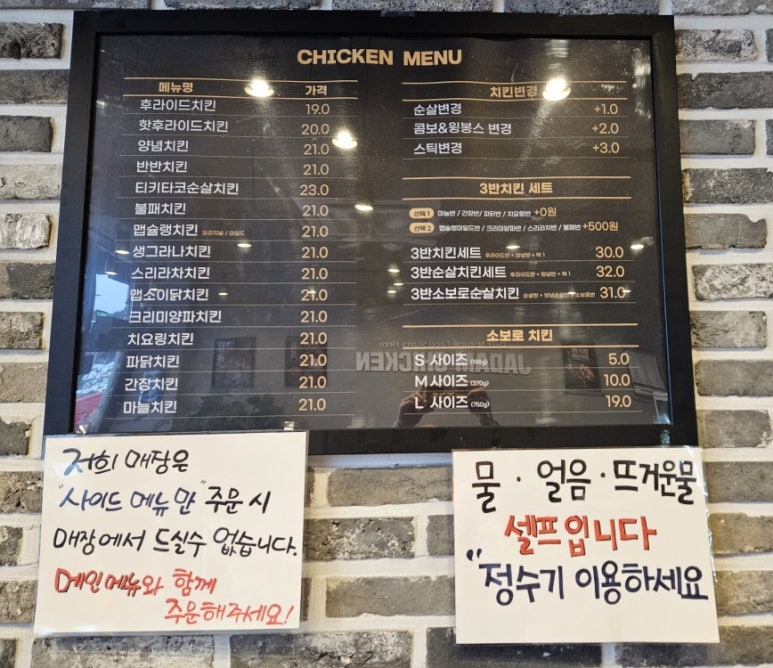 CHICKEN MENU
메뉴명 가격
후라이드치킨 19.0
핫후라이드치킨 20.0
양념치킨 21.0
반반치킨 21.0
티키타코순살치킨 23.0
불패치킨 21.0
맵슐랭치킨 오리지널 / 마일드 21.0
생그라나치킨 21.0
스리라차치킨 21.0
맵소이닭치킨 21.0
크리미양파치킨 21.0
치요링치킨 21.0
파닭치킨 21.0
간장치킨 21.0
마늘치킨 21.0
치킨변경
순살변경 +1.0
콤보&윙봉스 변경 +2.0
스틱변경 +3.0
3반치킨 세트
선택 1 마늘반 / 간장반 / 파닭반 / 치요링반 +0원
선택 2 맵슐랭마일드반 / 크리미양파반 / 스리라차반 / 불패반 +500원
3반치킨세트 후라이드반 + 양념반 + 택 1 30.0
3반순살치킨세트 후라이드반 + 양념반 + 택 1 32.0
3반소보로순살치킨 31.0
소보로 치킨
S 사이즈 5.0
M 사이즈 (370g) 10.0
L 사이즈 (750g) 19.0
JADAM CHICKEN
저희 매장은
"사이드 메뉴만" 주문 시
매장에서 드실수 없습니다.
메인메뉴와 함께
주문해주세요!
물 · 얼음 · 뜨거운물
셀프입니다
"정수기 이용하세요